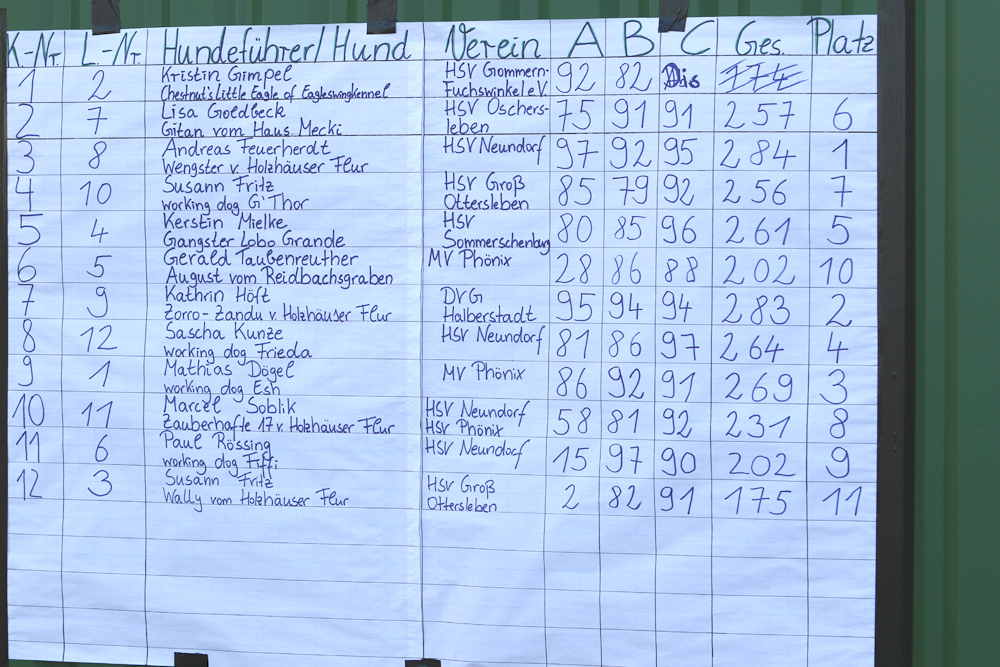 K-Nr. L.-Nr. Hundeführer/Hund Verein A B C Ges. Platz
1 2 Kristin Gimpel HSV Gommern- 92 82 Dis 174
Chestnut's Little Eagle of Eagleswingkennel Fuchswinkel e.V.
2 7 Lisa Goldbeck HSV Oschers- 75 91 91 257 6
Gitan vom Haus Mecki leben
3 8 Andreas Feuerherdt HSV Neundorf 97 92 95 284 1
Wengster v. Holzhäuser Flur
4 10 Susann Fritz HSV Groß 85 79 92 256 7
working dog G'Thor Ottersleben
5 4 Kerstin Mielke HSV 80 85 96 261 5
Gangster Lobo Grande Sommerschenburg
6 5 Gerald Taubenreuther MV Phönix 28 86 88 202 10
August vom Reidbachsgraben
7 9 Kathrin Höft DVG 95 94 94 283 2
Zorro-Zandu v. Holzhäuser Flur Halberstadt
8 12 Sascha Kunze HSV Neundorf 81 86 97 264 4
working dog Frieda
9 1 Mathias Dögel MV Phönix 86 92 91 269 3
working dog Esh
10 11 Marcel Soblik HSV Neundorf 58 81 92 231 8
Zauberhafte 17 v. Holzhäuser Flur HSV Phönix
11 6 Paul Rössing HSV Neundorf 15 97 90 202 9
working dog Fiffi
12 3 Susann Fritz HSV Groß 2 82 91 175 11
Wally vom Holzhäuser Flur Ottersleben